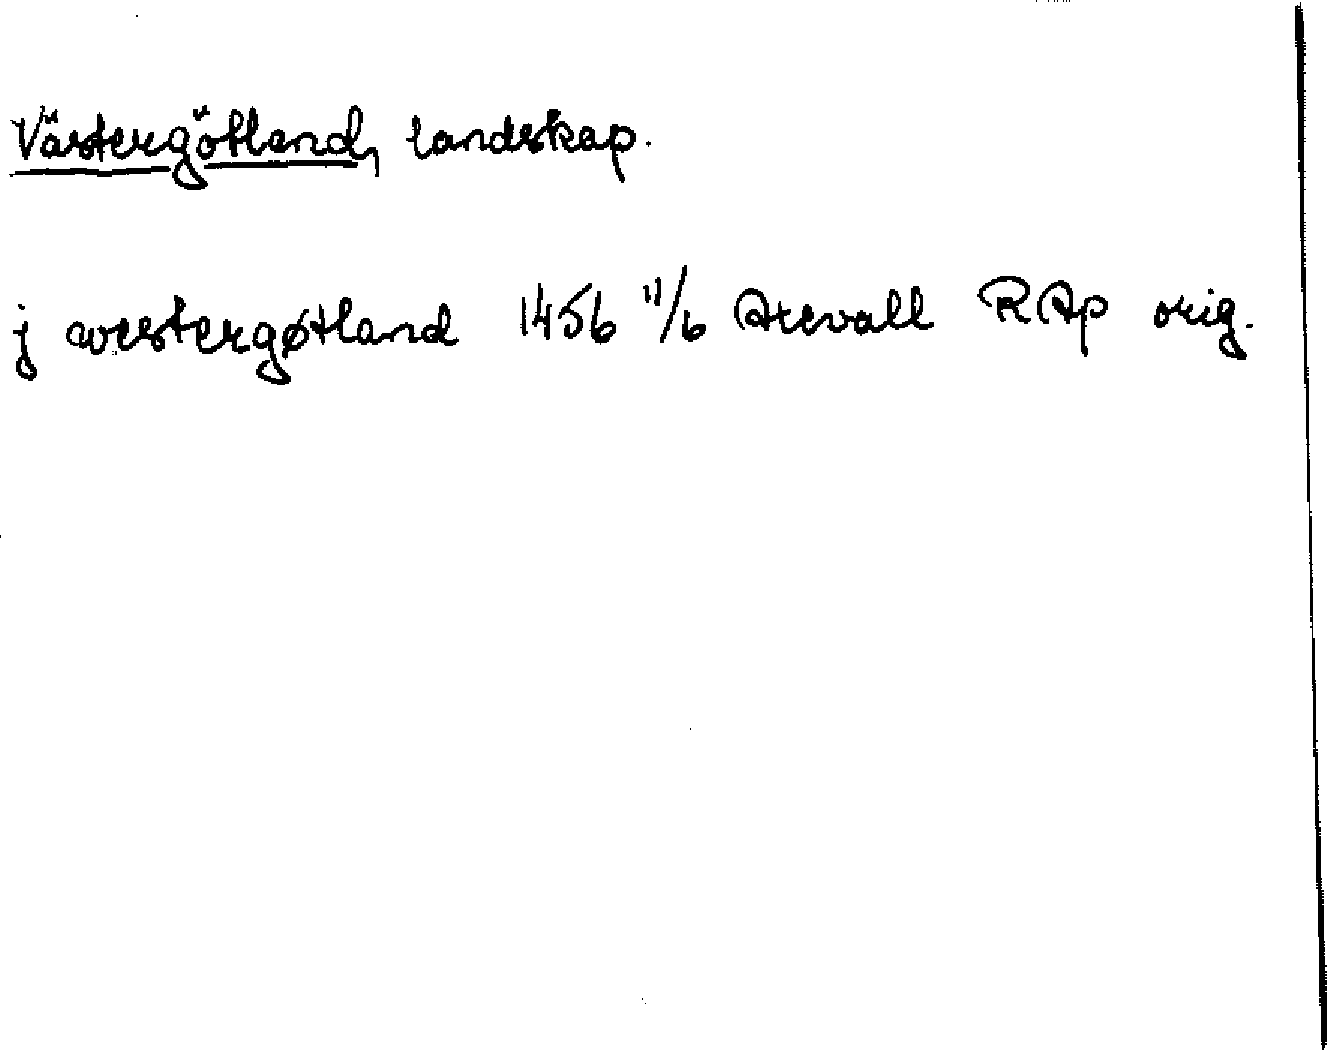 Västergötland, landskap.
j westergøtland 1456 11/6 Arevall RAp orig.